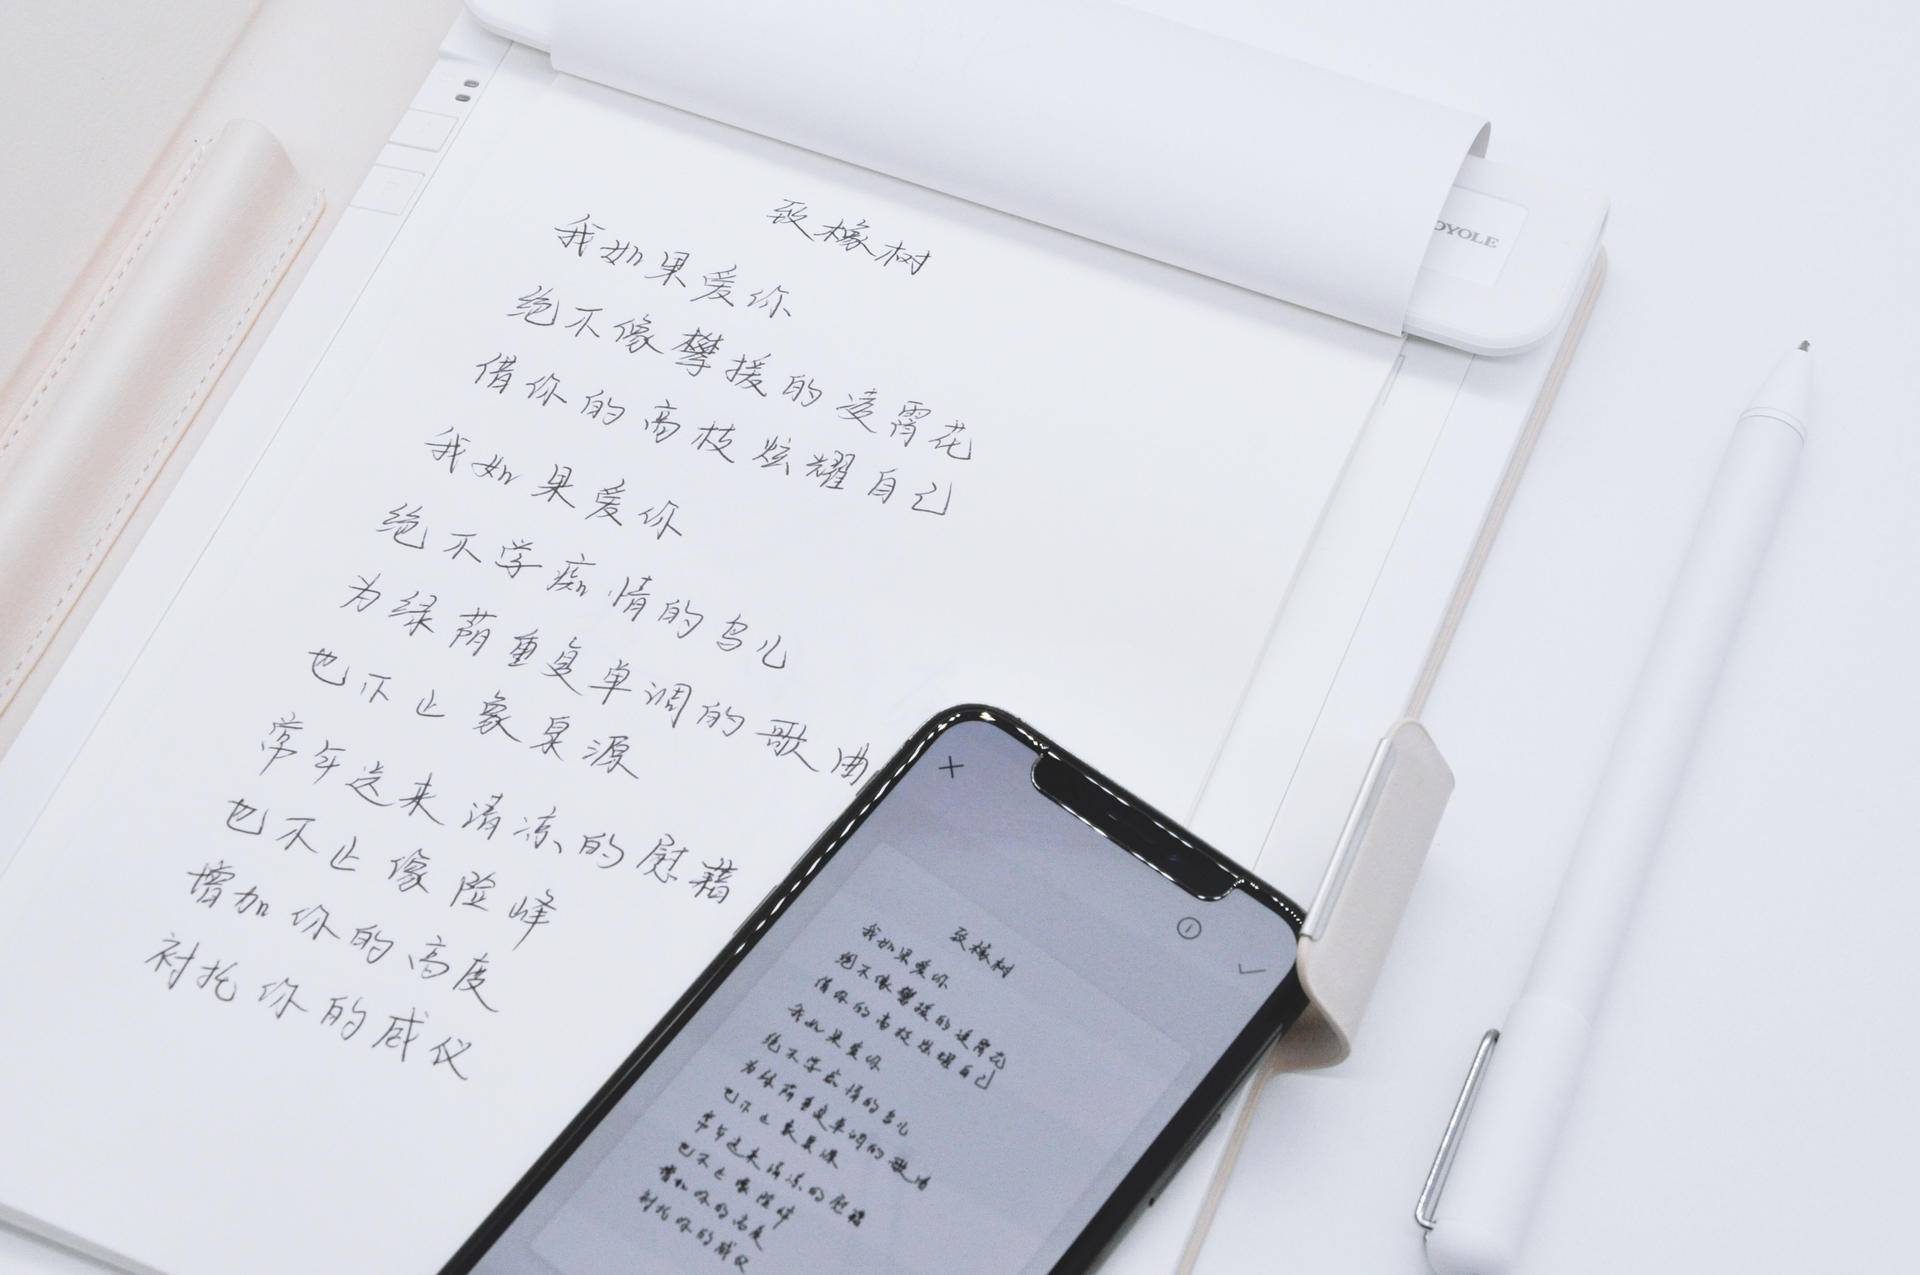 致橡树
我如果爱你
绝不像攀援的凌霄花
借你的高枝炫耀自己
我如果爱你
绝不学痴情的鸟儿
为绿荫重复单调的歌曲
也不止象泉源
常年送来清凉的慰藉
也不止像险峰
增加你的高度
衬托你的威仪
OYOLE
致橡树
我如果爱你
绝不像攀援的凌霄花
借你的高枝炫耀自己
我如果爱你
绝不学痴情的鸟儿
为绿荫重复单调的歌曲
也不止象泉源
常年送来清凉的慰藉
也不止像险峰
增加你的高度
衬托你的威仪